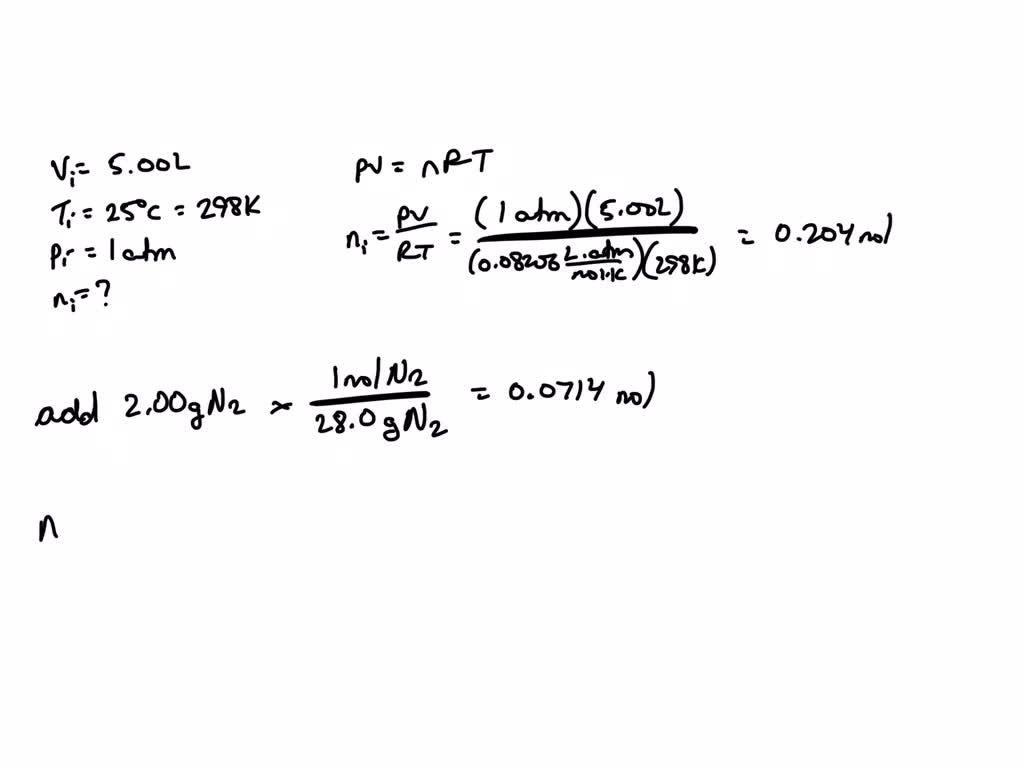 Vi = 5.00L
Ti = 25°C = 298K
Pi = 1 atm
ni = ?
PV = nRT
ni = PV/RT = (1 atm)(5.00L)/(0.08206 L·atm/mol·K)(298K) = 0.204 mol
add 2.00g N2 × 1 mol N2/28.0 g N2 = 0.0714 mol
n